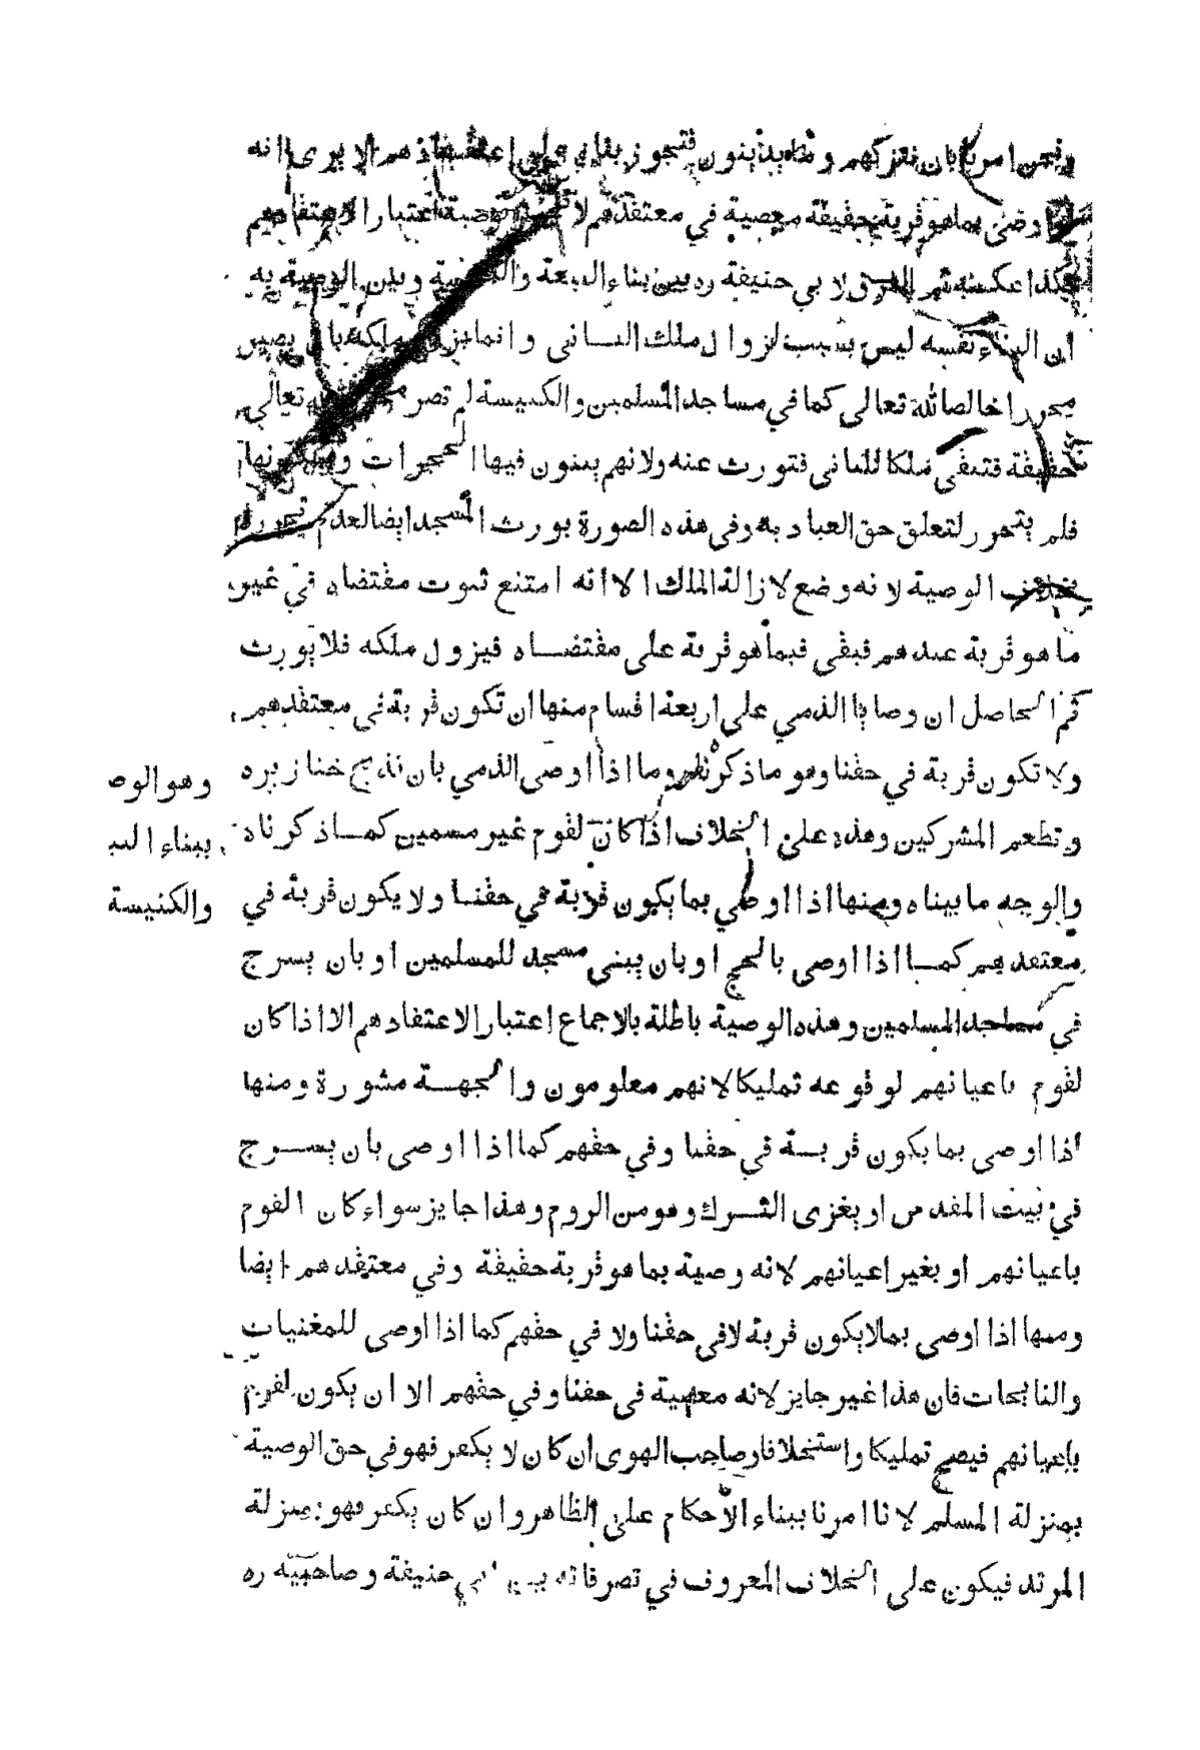 ونحن امرنا بان نتركهم وما يدينون فتجوز بناء على اعتقادهم الا يرى انه
لو اوصى بما هو قربة حقيقة معصية في معتقدهم لا تجوز الوصية اعتبارا لاعتقادهم
فكذا عكسه ثم الفرق لابي حنيفة ره بين بناء البيعة والكنيسة وبين الوصية به
ان البناء نفسه ليس بسبب لزوال ملك البانى وانما يزول ملكه بان يصير
محررا خالصا لله تعالى كما في مساجد المسلمين والكنيسة لم تصر محررة لله تعالى
حقيقة فتبقى ملكا للبانى فتورث عنه ولانهم يبنون فيها الحجرات ويسكنونها
فلم يتحرر لتعلق حق العباد به وفى هذه الصورة يورث المسجد ايضا لعدم تحرره
بخلاف الوصية لانه وضع لازالة الملك الا انه امتنع ثبوت مقتضاه في غير
ما هو قربة عندهم فبقى فيما هو قربة على مقتضاه فيزول ملكه فلا يورث
ثم الحاصل ان وصايا الذمي على اربعة اقسام منها ان تكون قربة في معتقدهم
ولا تكون قربة في حقنا وهو ما ذكرناه وما اذا اوصى الذمي بان تذبح خنازيره
وتطعم المشركين وهذه على الخلاف اذا كان لقوم غير مسمين كما ذكرناه
والوجه ما بيناه ومنها اذا اوصى بما يكون قربة في حقنا ولا يكون قربة في
معتقدهم كما اذا اوصى بالحج او بان يبنى مسجد للمسلمين او بان يسرج
في مساجد المسلمين وهذه الوصية باطلة بالاجماع اعتبارا لاعتقادهم الا اذا كان
لقوم باعيانهم لوقوعه تمليكا لانهم معلومون والجهة مشورة ومنها
اذا اوصى بما يكون قربة في حقنا وفي حقهم كما اذا اوصى بان يسرج
في بيت المقدس او يغزى الترك وهو من الروم وهذا جايز سواء كان القوم
باعيانهم او بغير اعيانهم لانه وصية بما هو قربة حقيقة وفي معتقدهم ايضا
ومنها اذا اوصى بما لا يكون قربة لا في حقنا ولا في حقهم كما اذا اوصى للمغنيات
والنايحات فان هذا غير جايز لانه معصية في حقنا وفي حقهم الا ان يكون لقوم
باعيانهم فيصح تمليكا واستخلافا وصاحب الهوى ان كان لا يكفر فهو في حق الوصية
بمنزلة المسلم لانا امرنا ببناء الاحكام على الظاهر وان كان يكفر فهو بمنزلة
المرتد فيكون على الخلاف المعروف في تصرفاته بين ابي حنيفة وصاحبيه ره
وهو الوص
ببناء البي
والكنيسة